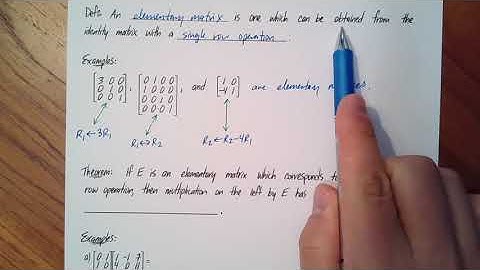 Def: An elementary matrix is one which can be obtained from the
identity matrix with a single row operation.
Examples:
[3 0 0
0 1 0
0 0 1], [0 1 0 0
1 0 0 0
0 0 1 0
0 0 0 1], and [1 0
-4 1] are elementary
R₁←3R₁ R₁↔R₂ R₂←R₂-4R₁
Theorem: If E is an elementary matrix which corresponds
row operation, then multiplication on the left by E has
Examples:
a) [0 1
1 0][1 -1 7
4 0 11] =